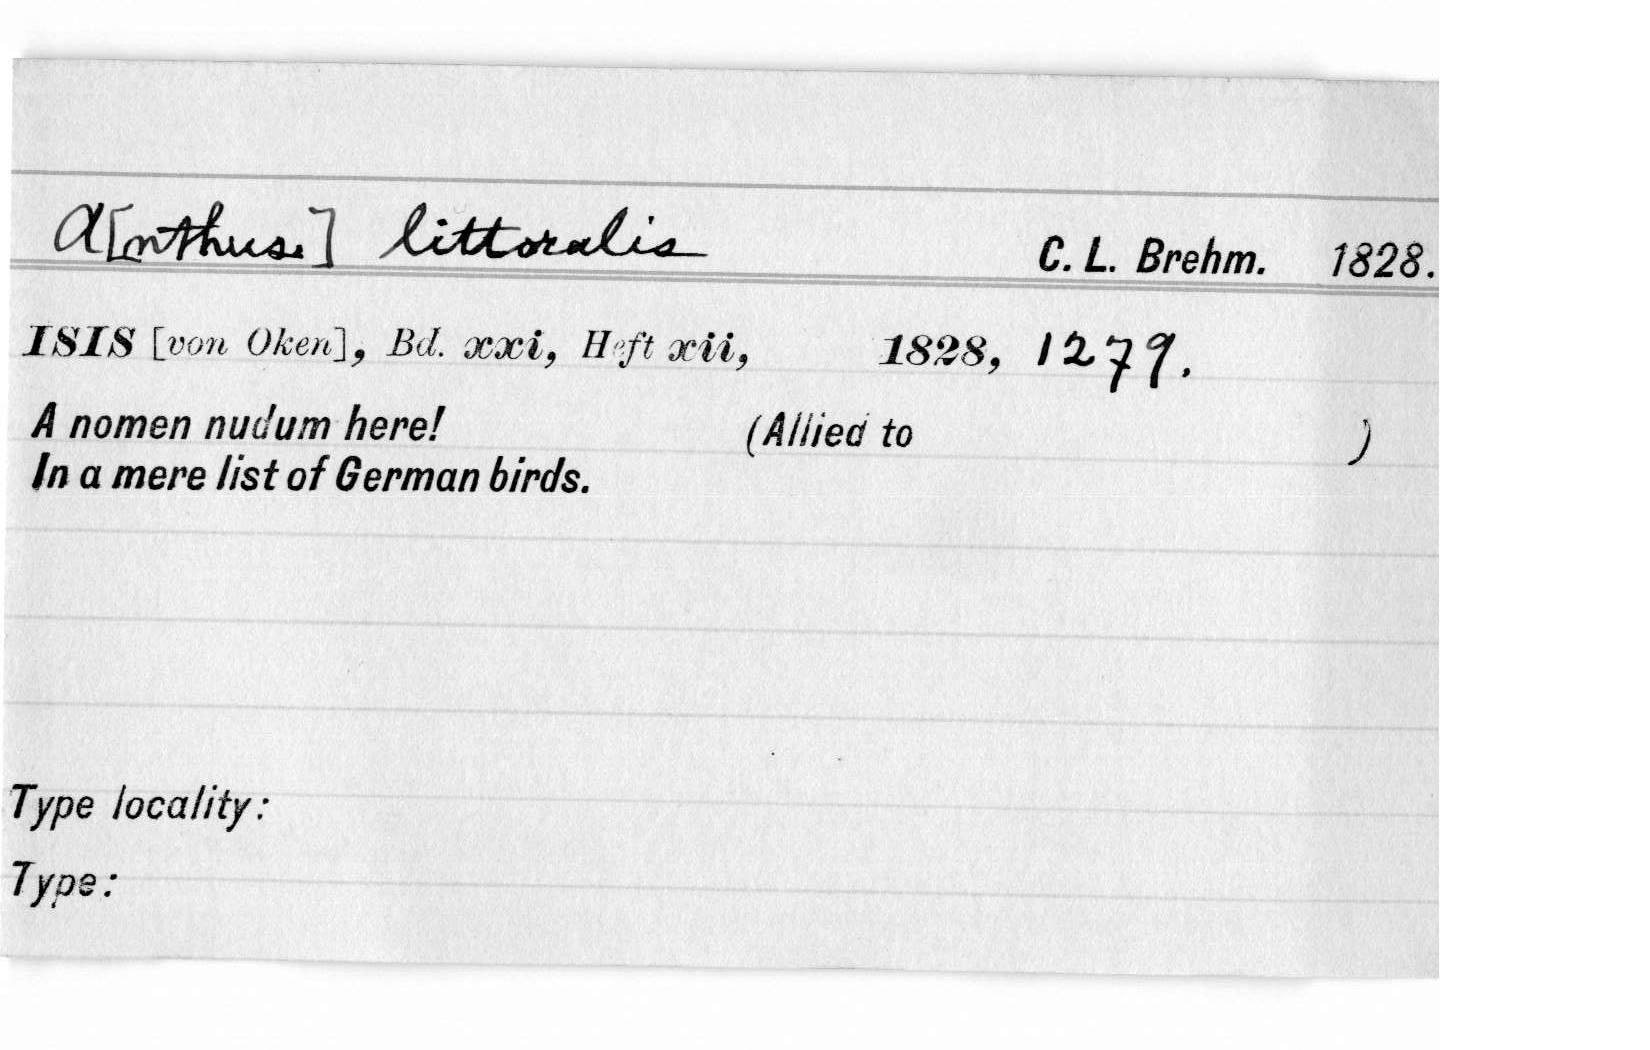 A[nthus.] littoralis C. L. Brehm. 1828.
ISIS [von Oken], Bd. xxi, Heft xii, 1828, 1279.
A nomen nudum here! (Allied to )
In a mere list of German birds.
Type locality:
Type: